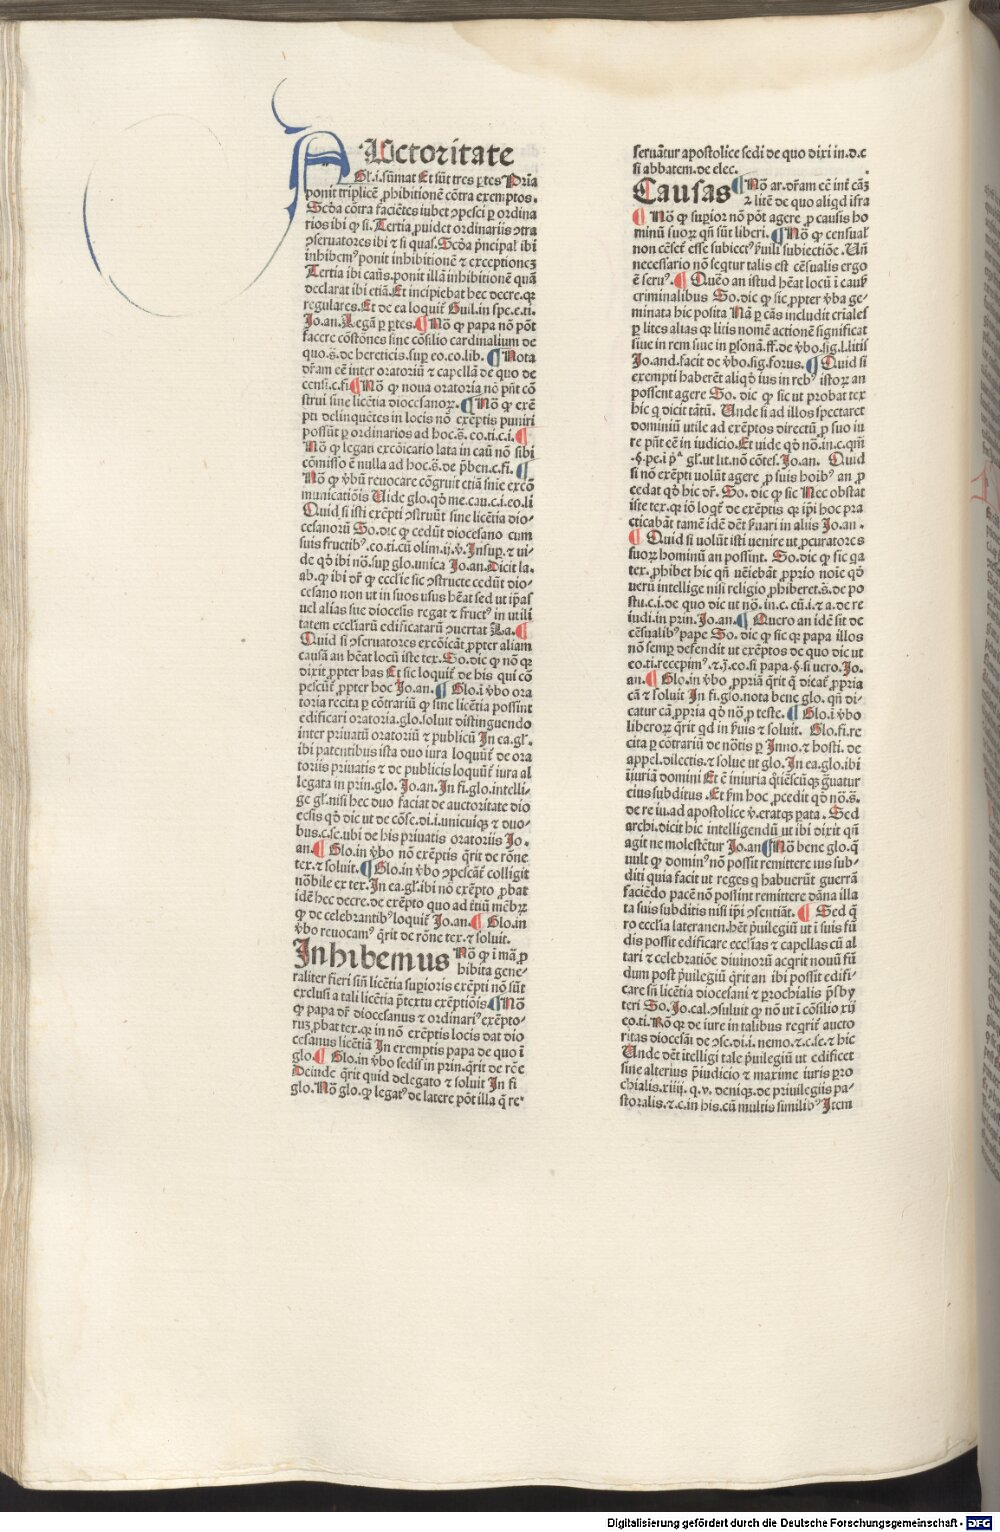 AUctoritate
Gl.i.sūmat Et sūt tres ꝑtes Pria
ponit triplicē ꝓhibitionē cōtra exemptos.
Scḋa cōtra faciētes iubet ↄpesci ꝑ ordina
rios ibi ꝙ si. Tertia ꝓuidet ordinariis ↄtra
ↄseruatores ibi ⁊ si quas. Scḋa pncipal ibi
inhibem⁹ ponit inhibitionē ⁊ exceptionez
Tertia ibi caūs. ponit illā inhibitionē quā
declarat ibi etiā. Et incipiebat hec decre. ꝙ
regulares. Et de ea loquit̄ Guil. in spe. e. ti.
Jo. an. Legā ꝑ ꝑtes. Nō ꝙ papa nō pōt
facere cōstōnes sine cōsilio cardinalium de
quo. s̄. de hereticis. suꝑ eo. co. lib. Nota
dr̄am eē inter oratoriū ⁊ capellā de quo de
censi. c. fi Nō ꝙ noua oratoria nō pn̄t cō
strui sine licētia diocesanoꝝ. Nō ꝙ exē
pti delinquētes in locis nō exēptis puniri
possūt ꝑ ordinarios ad hoc. s̄. eo. ti. c. i.
Nō ꝙ legati excōicatio lata in caū nō sibi
cōmisso ē nulla ad hoc. s̄. de p̄ben. c. fi.
Nō ꝙ v̄bū reuocare cōgruit etiā snie excō
municatiōis Uide glo. qḋ me. cau. c. i. eo. li
Quid si isti exēpti ↄstruūt sine licētia dio-
cesanorū So. dic ꝙ cedūt diocesano cum
suis fructib⁹. eo. ti. cū olim. ij. v̄. Insuꝑ. ⁊ vi-
de qḋ ibi nō. suꝑ glo. vnica Jo. an. Dicit la.
ab. ꝙ ibi dr̄ ꝙ eccl̄ie sic ↄstructe cedūt dio-
cesano non ut in suos usus hēat sed ut ip̄as
uel alias sue diocesis regat ⁊ fruct⁹ in utili
tatem eccl̄iarū edificatarū ↄuertat La.
Quid si ↄseruatores excōicāt ꝓpter aliam
causā an hēat locū iste tex. So. dic ꝙ nō qꝛ
dixit ꝓpter has Et sic loquit̄ de his qui cō
pescūt̄ ꝓpter hoc Jo. an. Glo. ī v̄bo ora
toria recita ꝑ cōtrariū ꝙ sine licētia possint
edificari oratoria. glo. soluit distinguendo
inter priuatū oratoriū ⁊ publicū In ea. gl̄.
ibi patentibus ista duo iura loquūt̄ de ora
toriis priuatis ⁊ de publicis loquūt̄ iura al
legata in prin. glo. Jo. an. In fi. glo. intelli-
ge gl̄. nisi hec duo faciat de auctoritate dio
cesis qḋ dic ut de cōse. di. i. unicuiqꝫ ⁊ duo-
bus. c. se. ubi de his priuatis oratoriis Jo.
an. Glo. in v̄bo nō exēptis q̄rit de rōne
tex. ⁊ soluit. Glo. in v̄bo ↄpescāt̄ colligit
nōbile ex tex. In ea. gl̄. ibi nō exēpto ꝓbat
idē hec decre. de exēpto quo ad t̄tiū mēbꝝ
ꝙ de celebrantib⁹ loquit̄ Jo. an. Glo. in
v̄bo reuocam⁹ q̄rit de rōne tex. ⁊ soluit.
Inhibemus Nō ꝙ ī mā ꝓ
hibita gene-
raliter fieri sn̄ licētia suꝑioris exēpti nō sūt
exclusi a tali licētia p̄textu exēptiōis. Nō
ꝙ papa dr̄ diocesanus ⁊ ordinari⁹ exēpto-
rum ꝓbat tex. ꝙ in nō exēptis locis dat dio
cesanus licētiā In exemptis papa de quo ī
glo. Glo. in v̄bo sedis in prin. q̄rit de rōe
Deinde q̄rit quid delegato ⁊ soluit In fi
glo. Nō glo. ꝙ legat⁹ de latere pōt illa q̄ re-
seruātur apostolice sedi de quo dixi in. d. c
si abbatem. de elec.
Causas Nō ar. dr̄am eē int̄ cāꝫ
⁊ litē de quo aliqd īfra
Nō ꝙ suꝑior nō pōt agere ꝓ causis ho
minū suoꝝ qn̄ sūt liberi. Nō ꝙ censual̄
non cēset̄ esse subiect⁹ p̄uili subiectiōe. Un̄
necessario nō seqtur talis est cēsualis ergo
ē seru⁹. Quero an istud hēat locū ī cauſ
criminalibus So. dic ꝙ sic ꝓpter v̄ba ge-
minata hic posita Nā ꝑ cās includit crīales
ꝑ lites alias qꝛ litis nomē actionē significat
siue in rem siue in ꝑsonā. ff. de v̄bo. sig. l. litis
Jo. and. facit de v̄bo. sig. forus. Quid si
exempti haberēt aliqḋ ius in reb⁹ istoꝝ an
possent agere So. dic ꝙ sic ut probat tex
hic q̇ dicit tātū. Unde si ad illos spectaret
dominiū utile ad exēptos directū ꝓ suo iu
re pn̄t eē in iudicio. Et uide qḋ nō. in. c. qm̄
.§. pe. i pᵃ gl̄. ut lit. nō cōtes. Jo. an. Quid
si nō exēpti uolūt agere ꝓ suis hoib⁹ an ꝓ
cedat qḋ hic dr̄. So. dic ꝙ sic Nec obstat
iste tex. ꝙ iō loqt̄ de exēptis qꝛ ip̄i hoc pra
cticabāt tamē idē dēt ẜuari in aliis Jo. an.
Quid si uolūt isti uenire ut ꝓcuratores
suoꝝ hominū an possint. So. dic ꝙ sic qa
tex. ꝓhibet hic qn̄ uēiebāt ꝓprio noie qḋ
uerū intellige nisi religio ꝓhiberet. s̄. de po
stu. c. i. de quo dic ut nō. in. c. cū. i. ⁊ a. de re
iudi. in prin. Jo. an. Quero an idē sit de
cēsualib⁹ pape So. dic ꝙ sic qꝛ papa illos
nō semꝑ defendit ut exēptos de quo dic ut
eo. ti. recepim⁹. ⁊. j. eo. si papa. §. si uero. Jo.
an. Glo. in v̄bo ꝓpriā q̄rit q̄ dicat̄ ꝓpria
cā ⁊ soluit In fi. glo. nota bene glo. qn̄ di-
catur cā ꝓpria qḋ nō. ꝓ teste. Glo. ī v̄bo
liberoꝝ q̄rit qd in ẜuis ⁊ soluit. Glo. fi. re
cita ꝑ cōtrariū de nōtis ꝑ Inno. ⁊ hosti. de
appel. dilectis. ⁊ solue ut glo. In ea. glo. ibi
iniuriā domini Et ē iniuria q̄tiēscūqꝫ g̃uatur
eius subditus. Et ẜm hoc ꝓcedit qḋ nō. s̄.
de re iu. ad apostolice v̄. eratqꝫ ꝑata. Sed
archi. dicit hic intelligendū ut ibi dixit qn̄
agit ne molestētur Jo. an Nō bene glo. q̄
uult ꝙ domin⁹ nō possit remittere ius sub-
diti quia facit ut reges q̇ habuerūt guerrā
faciēdo pacē nō possint remittere dāna illa
ta suis subditis nisi ip̄i ↄsentiāt. Sed q̄
ro eccl̄ia lateranen. hēt p̄uilegiū ut ī suis fū
dis possit edificare eccl̄ias ⁊ capellas cū al
tari ⁊ celebratiōe diuinorū acq̄rit nouū fū
dum post p̄uilegiū q̄rit̄ an ibi possit edifi-
care sn̄ licētia diocesani ⁊ ꝑochialis p̄sby
teri So. Jo. cal. ↄsuluit ꝙ nō ut ī cōsilio xij
eo. ti. Rō qꝛ de iure in talibus reqrit̄ aucto
ritas diocesāi de ↄse. di. i. nemo. ⁊. c. se. ⁊ hic
Unde dēt itelligi tale p̄uilegiū ut edificet
sine alterius p̄iudicio ⁊ maxime iuris ꝑro
chialis. xiiij. q. v. deniqꝫ. de priuilegiis pa-
storalis. ⁊. c. in his. cū multis similib⁹ Item
Digitalisierung gefördert durch die Deutsche Forschungsgemeinschaft - DFG